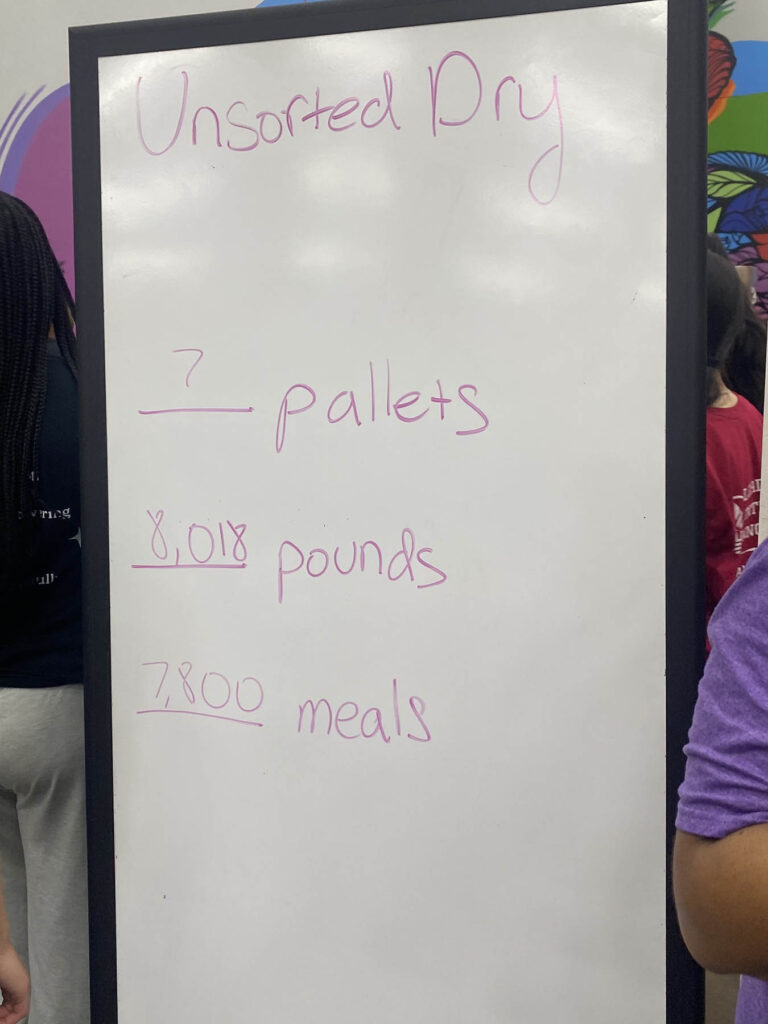 Unsorted Dry
7 pallets
8,018 pounds
7,800 meals